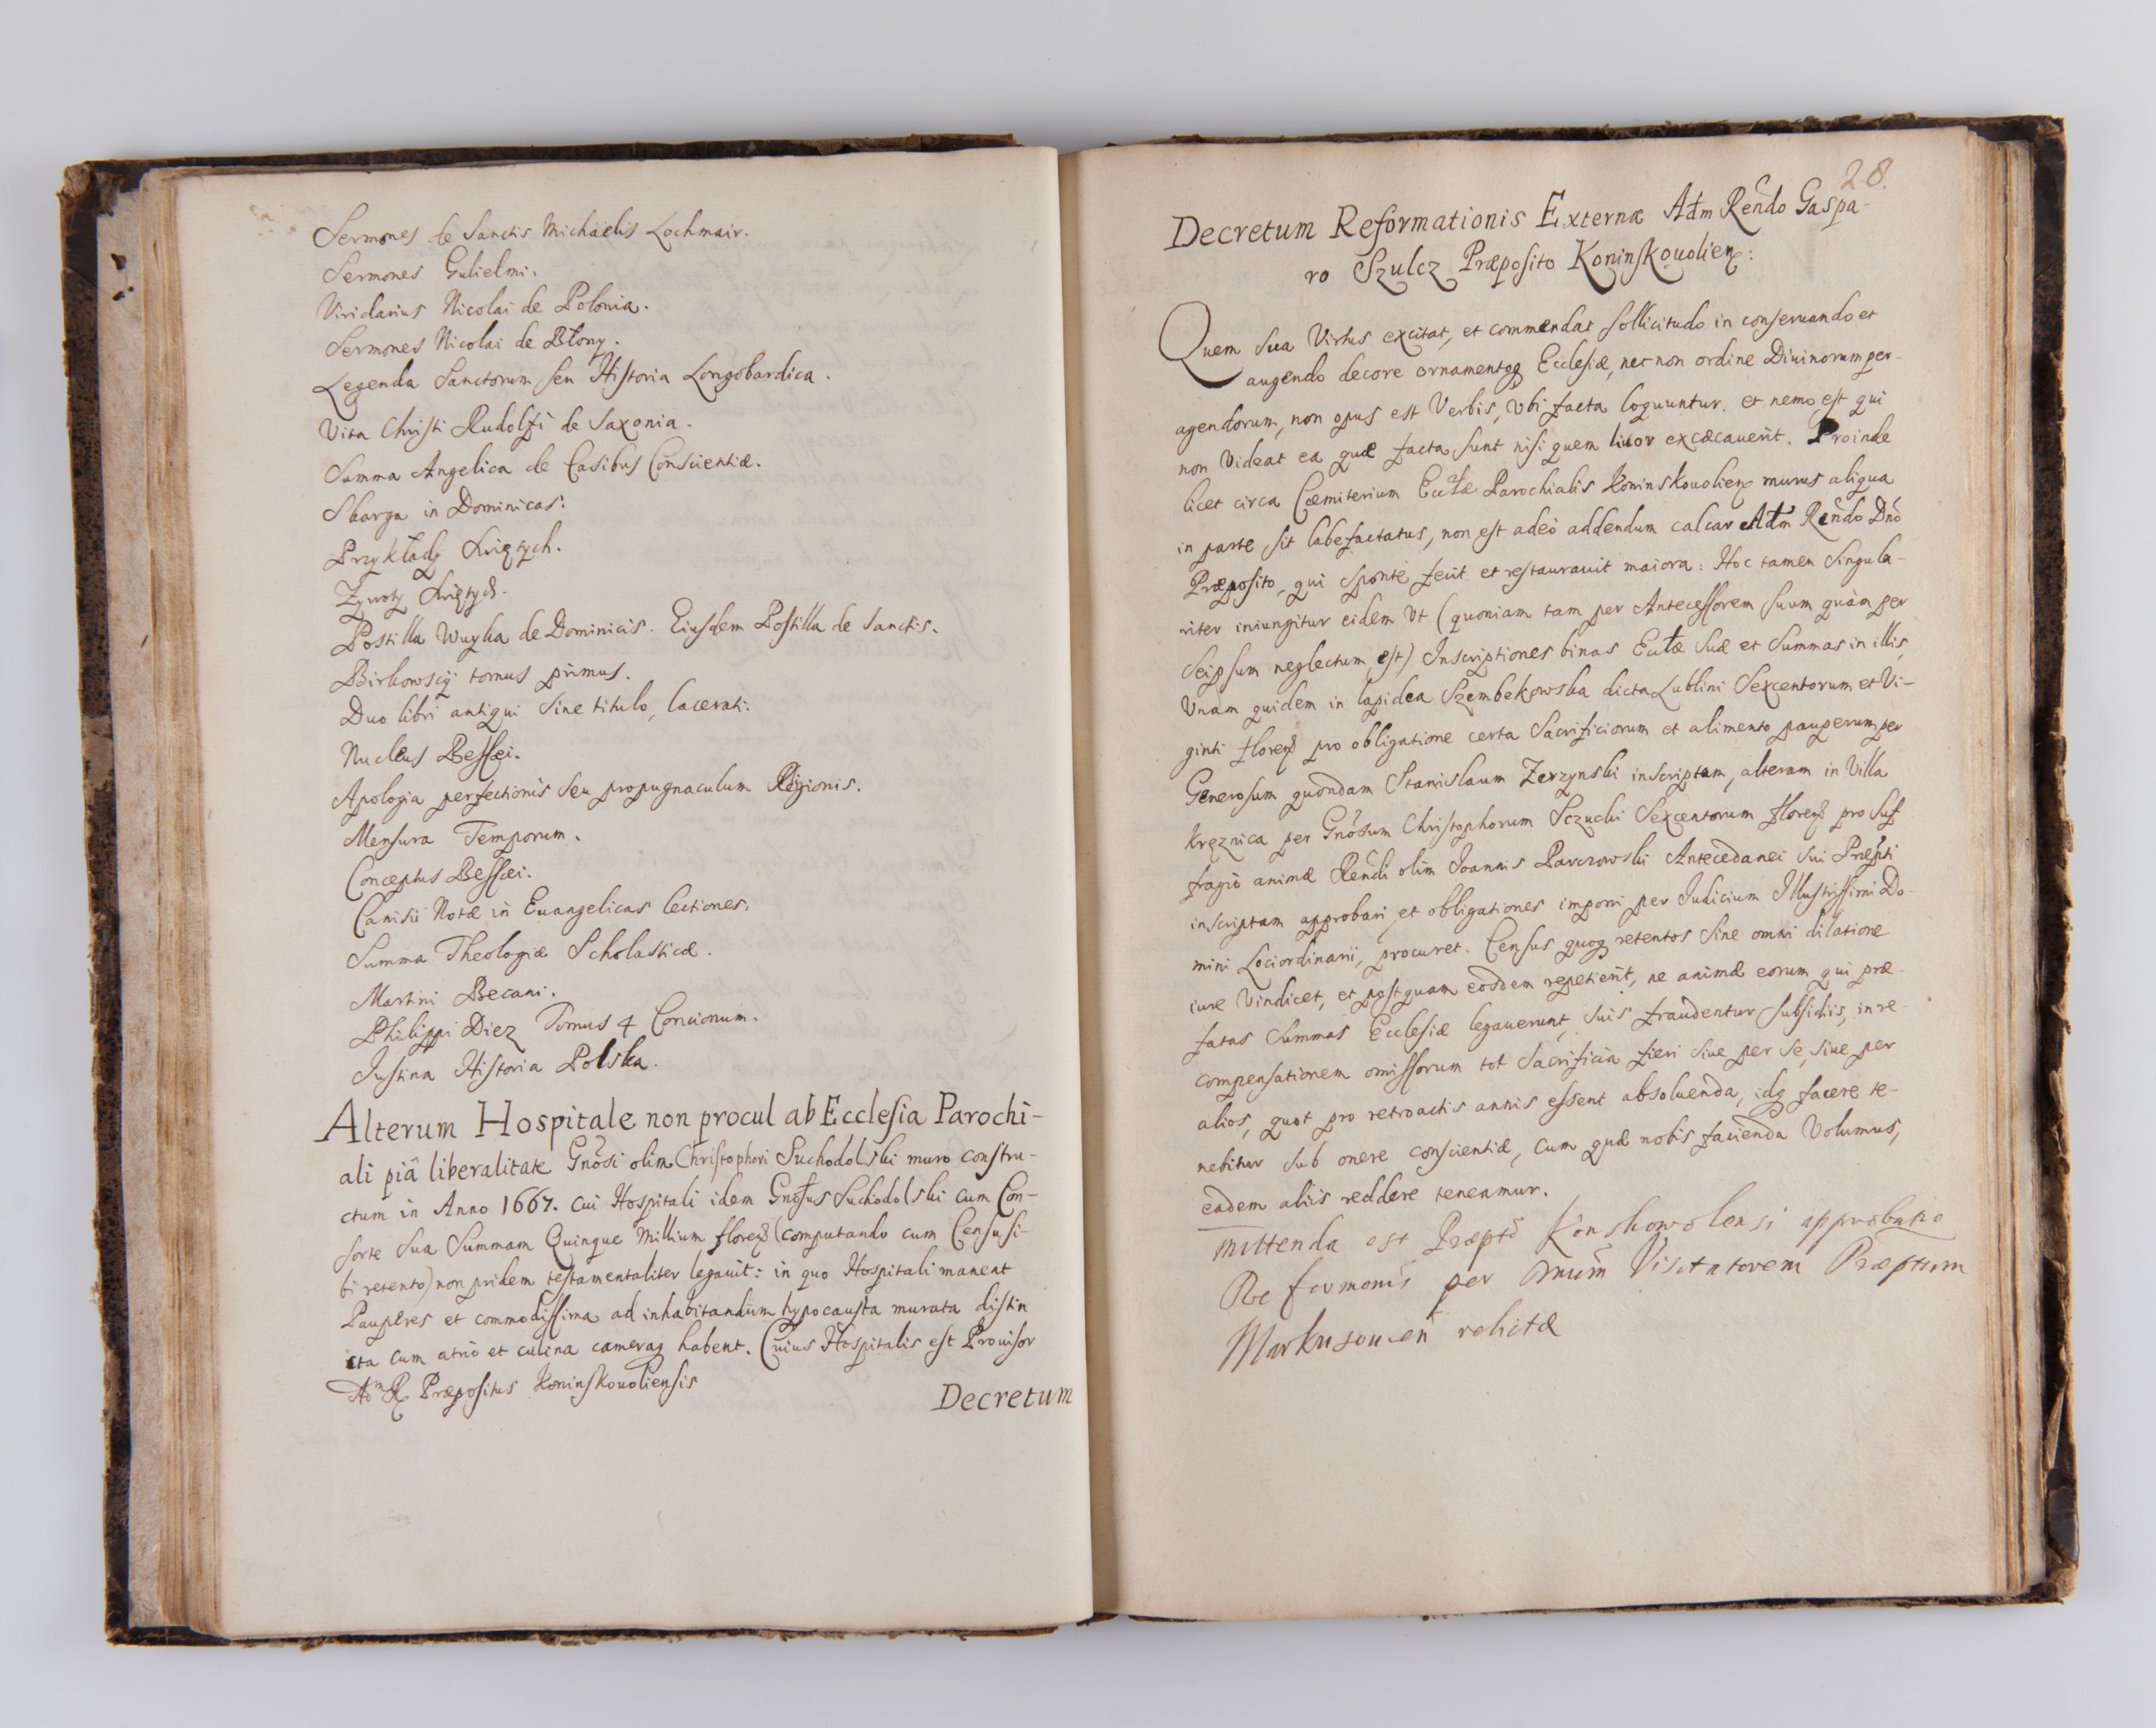 Sermones de Sanctis Michaelis Lochmair.
Sermones Gulielmi.
Viridarius Nicolai de Polonia.
Sermones Nicolai de Błony.
Legenda Sanctorum seu Historia Longobardica.
Vita Christi Rudolfi de Saxonia.
Summa Angelica de Casibus Conscientiæ.
Skarga in Dominicas:
Przykłady Swiętych.
Zywoty Swiętych.
Postilla Wuyka de Dominicis. Eiusdem Postilla de Sanctis.
Birkowscÿ tomus primus.
Duo libri antiqui sine titulo, lacerati:
Nucleus Bessæi.
Apologia perfectionis seu propugnaculum Religionis.
Mensura Temporum.
Conceptus Bessæi.
Canisii Notæ in Euangelicas lectiones.
Summa Theologiæ Scholasticæ.
Martini Becani.
Philippi Diez Tomus 4 Concionum.
Justina Historia Polska.
Alterum Hospitale non procul ab Ecclesia Parochi-
ali piâ liberalitate Gnõsi olim Christophori Suchodolski muro constru-
ctum in Anno 1667. cui Hospitali idem Gnõsus Suchodolski cum Con-
sorte sua Summam Quinque Millium floren̄ (computando cum Censu si-
bi retento) non pridem testamentaliter legauit: in quo Hospitali manent
Pauperes et commodissima ad inhabitandum hypocausta murata distin
cta cum atrio et culina cameraq habent. Cuius Hospitalis est Prouisor
Adm R Præpositus Koninskouoliensis
Decretum
28.
Decretum Reformationis Externæ Adm Rendo Gaspa-
ro Szulcz Præposito Koninskouolien:
Quem sua Virtus excitat, et commendat sollicitudo in conseruando et
augendo decore ornamentoq Ecclesiæ, nec non ordine Diuinorum per-
agendorum, non opus est Verbis, Vbi facta loquuntur. et nemo est qui
non Videat ea quæ facta sunt nisi quem liuor excæcauerit. Proinde
licet circa Cæmiterium Ecclæ Parochialis Koninskouolien murus aliqua
in parte sit labefactatus, non est adeò addendum calcar Adm Rendo Dno
Præposito, qui sponte fecit et restaurauit maiora: Hoc tamen Singula-
riter iniungitur eidem Vt (quoniam tam per Antecessorem suum quàm per
Seipsum neglectum est) Inscriptiones binas Ecclæ suæ et Summas in illis,
Vnam quidem in lapidea Szembekowska dicta Lublini Sexcentorum et Vi-
ginti floren̄ pro obligatione certa Sacrificiorum et alimento pauperum per
Generosum quondam Stanislaum Zerzynski inscriptam, alteram in Villa
Kręznica per Gnõsum Christophorum Sczucki Sexcentorum floren̄ pro suf
fragio animæ Rendi olim Joannis Parczowski Antecedanei sui Præpti
inscriptam approbari et obligationes imponi per Iudicium Illustrissimi Do-
mini Lociordinarii, procuret. Census quoq retentos sine omni dilatione
iure Vindicet, et postquam eosdem repetierit, ne animæ eorum qui præ-
fatas Summas Ecclesiæ legauerunt, suis fraudentur subsidiis, in re-
compensationem omissorum tot Sacrificia fieri siue per se, siue per
alios, quot pro retroactis annis essent absoluenda, idq facere te-
nebitur sub onere conscientiæ, cum quæ nobis facienda Volumus,
eadem aliis reddere teneamur.
mittenda est Præpto Konskowolensi approbatio
per Visitatorem Præptum
relictæ